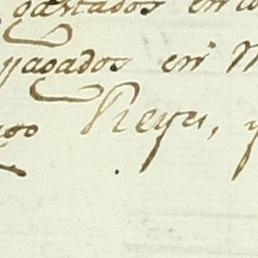 gastados en
pagados en M
Reyes, y